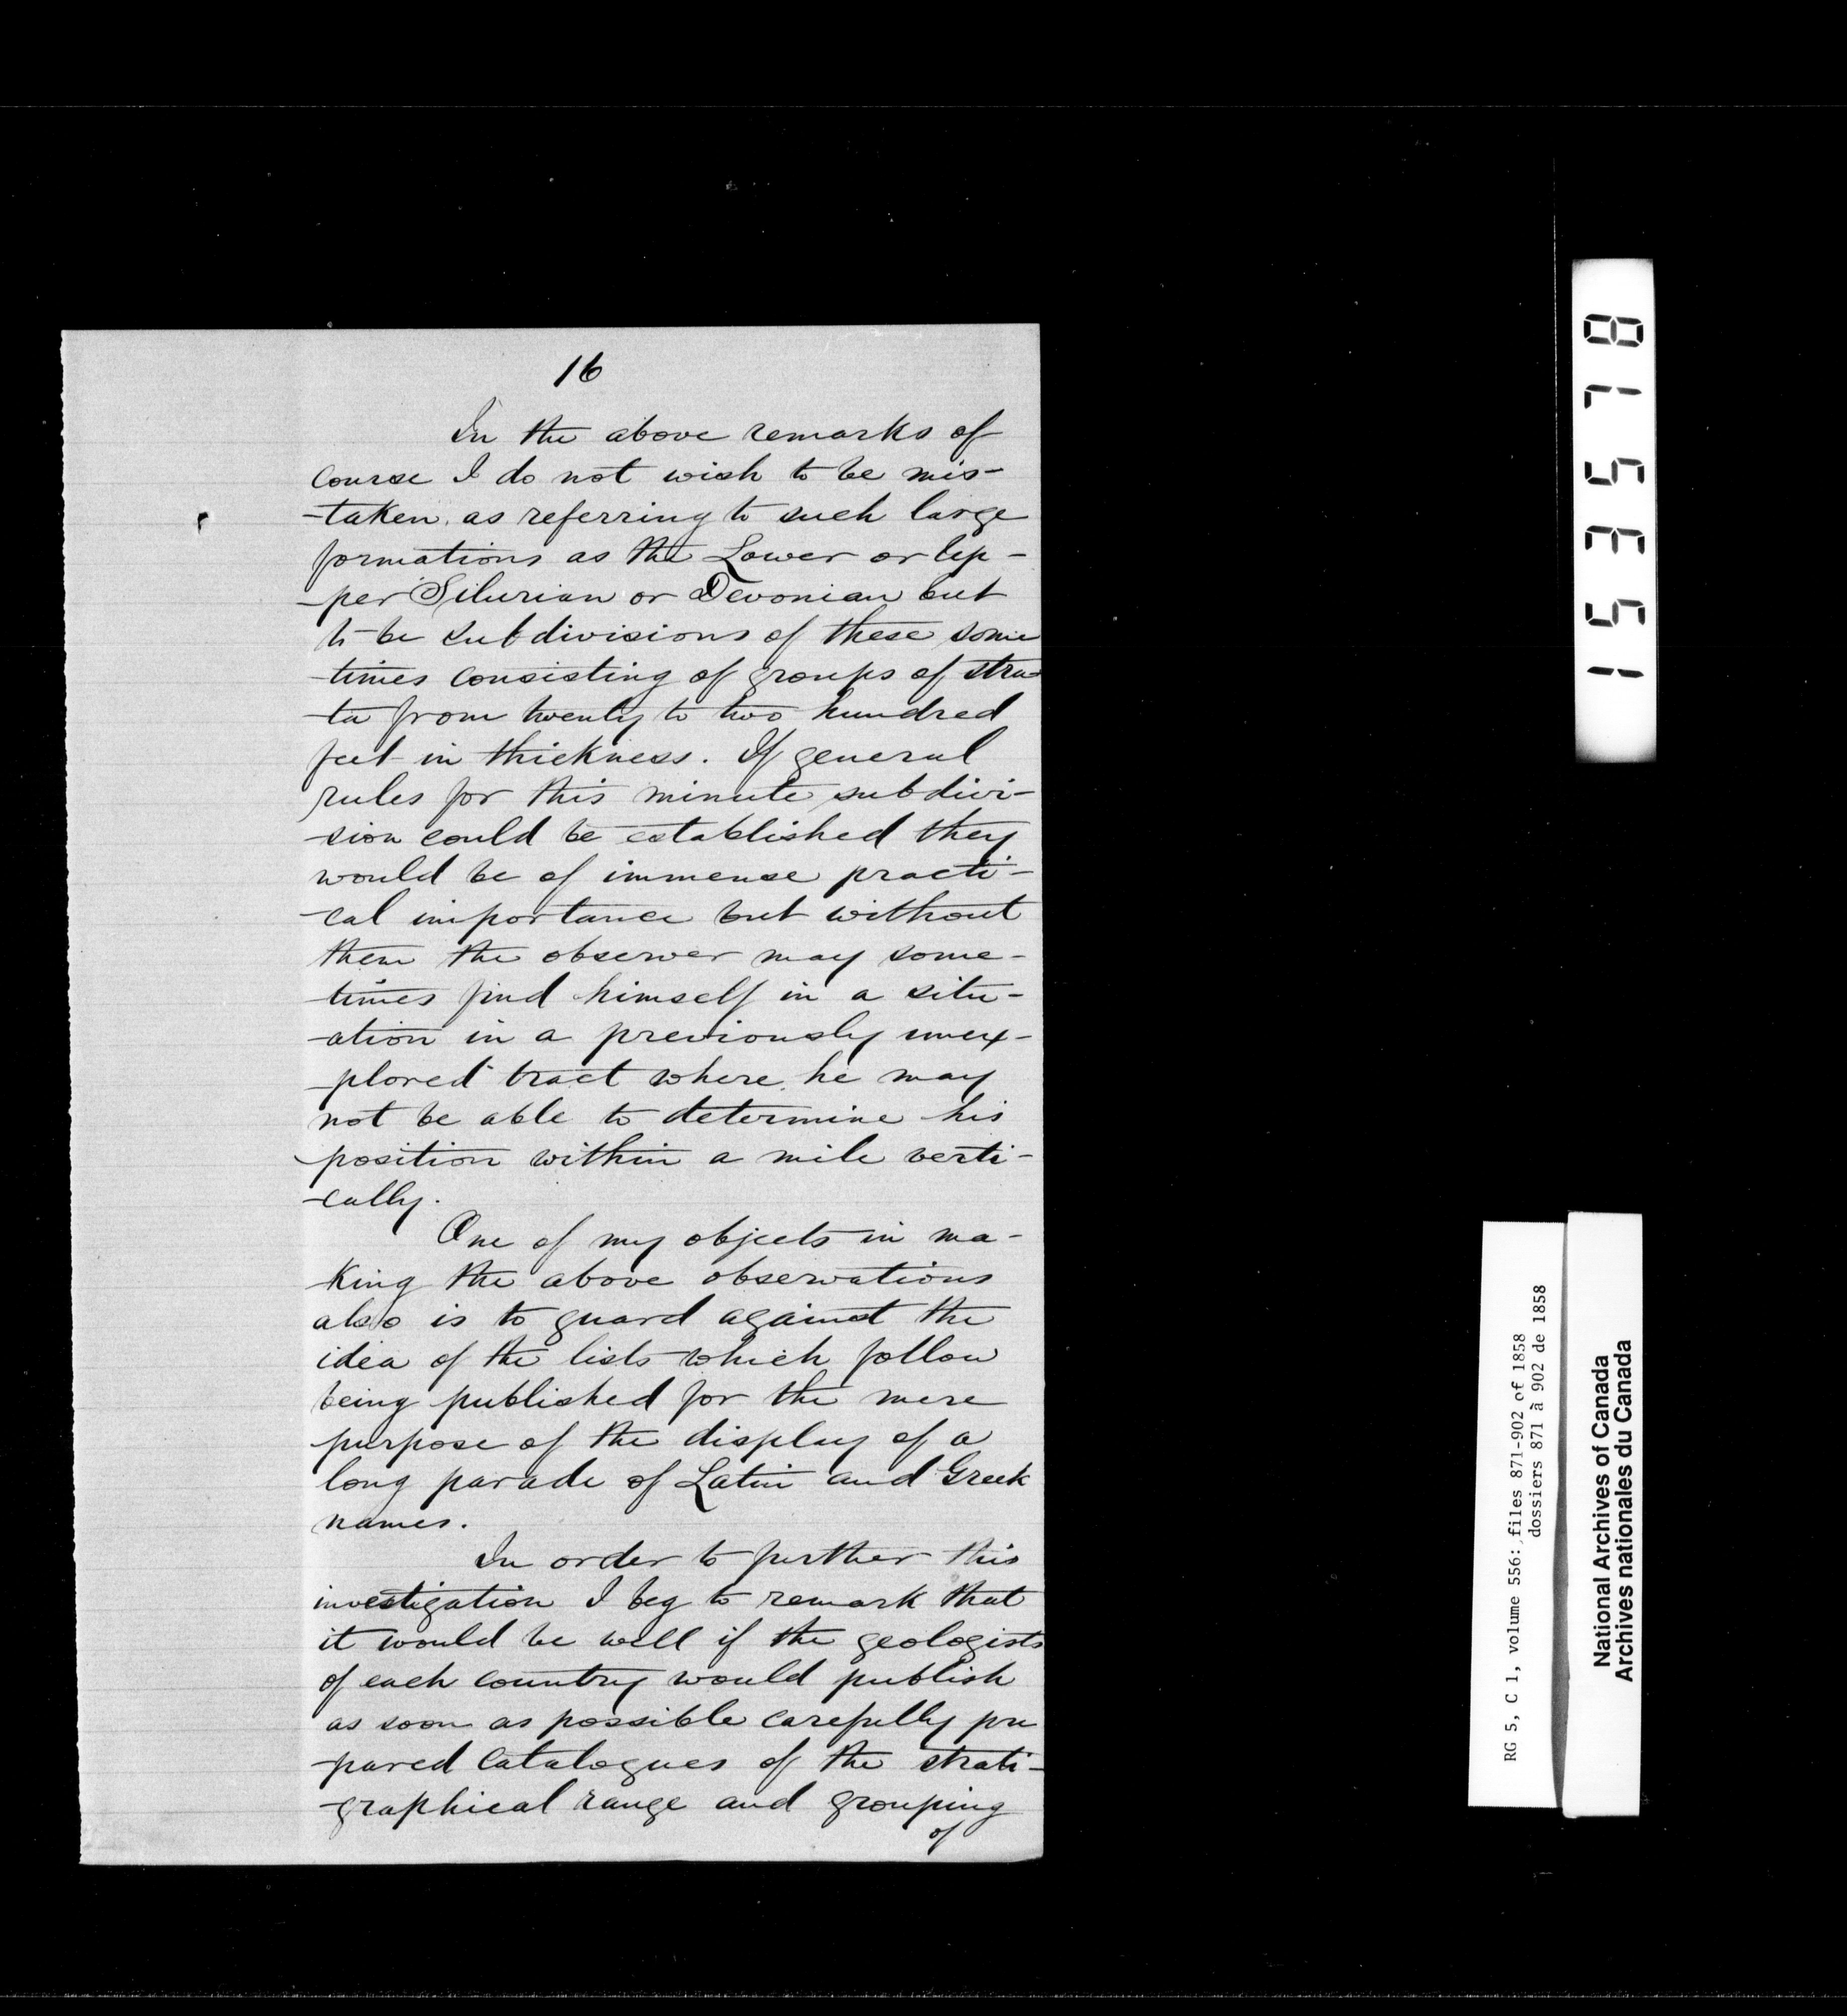 16
In the above remarks of
course I do not wish to be mis-
-taken as referring to such large
formations as the Lower or Up-
-per Silurian or Devonian but
to be subdivisions of these some
times consisting of groups of stra-
-ta from twenty to two hundred
feet in thickness. If general
rules for this minute subdivi-
-sion could be established they
would be of immense practi-
-cal importance but without
them the observer may some-
-times find himself in a situ-
-ation in a previously unex-
-plored tract where he may
not be able to determine his
position within a mile verti-
-cally.
One of my objects in ma-
-king the above observations
also is to guard against the
idea of the lists which follow
being published for the mere
purpose of the display of a
long parade of Latin and Greek
names.
In order to further this
investigation I beg to remark that
it would be well if the geologists
of each country would publish
as soon as possible carefully pre
-pared catalogues of the strati-
-graphical range and grouping
of
153578
RG 5, C 1, volume 556: files 871-902 of 1858
dossiers 871 à 902 de 1858
National Archives of Canada
Archives nationales du Canada